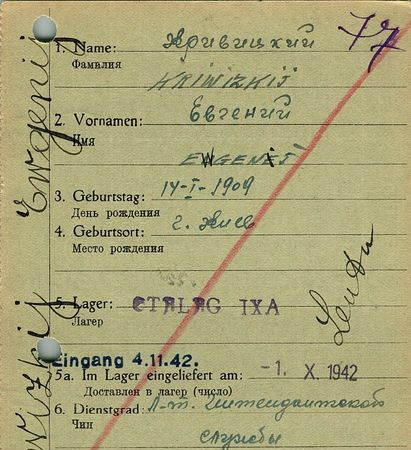 77
1. Name: Кривицкий
Фамилия
KRIWIZKIJ
2. Vornamen: Евгений
Имя
EWGENIJ
3. Geburtstag: 14-I-1909
День рождения
4. Geburtsort: г. Киев
Место рождения
5. Lager: STALAG IXA
Лагерь
Eingang 4.11.42.
5a. Im Lager eingeliefert am: -1. X. 1942
Доставлен в лагерь (число)
6. Dienstgrad: Л-т. Интендантской
Чин
службы
Ewgenij